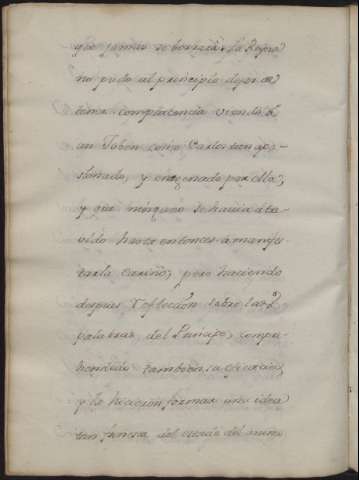 que jamas se borrará: la Reyna
no pudo al principio dejar de
tener complacencia viendo á
un Joben como Carlos tan apa-
sionado, y enagenado por ella;
y que ninguno se havia atre-
vido hasta entonces á manifes-
tarla cariño; pero haciendo
despues reflecsion sobre las
palabras del Principe, compre-
hendió tambien su
y le hicieron formar una idea
tan funesta del estado del mismo